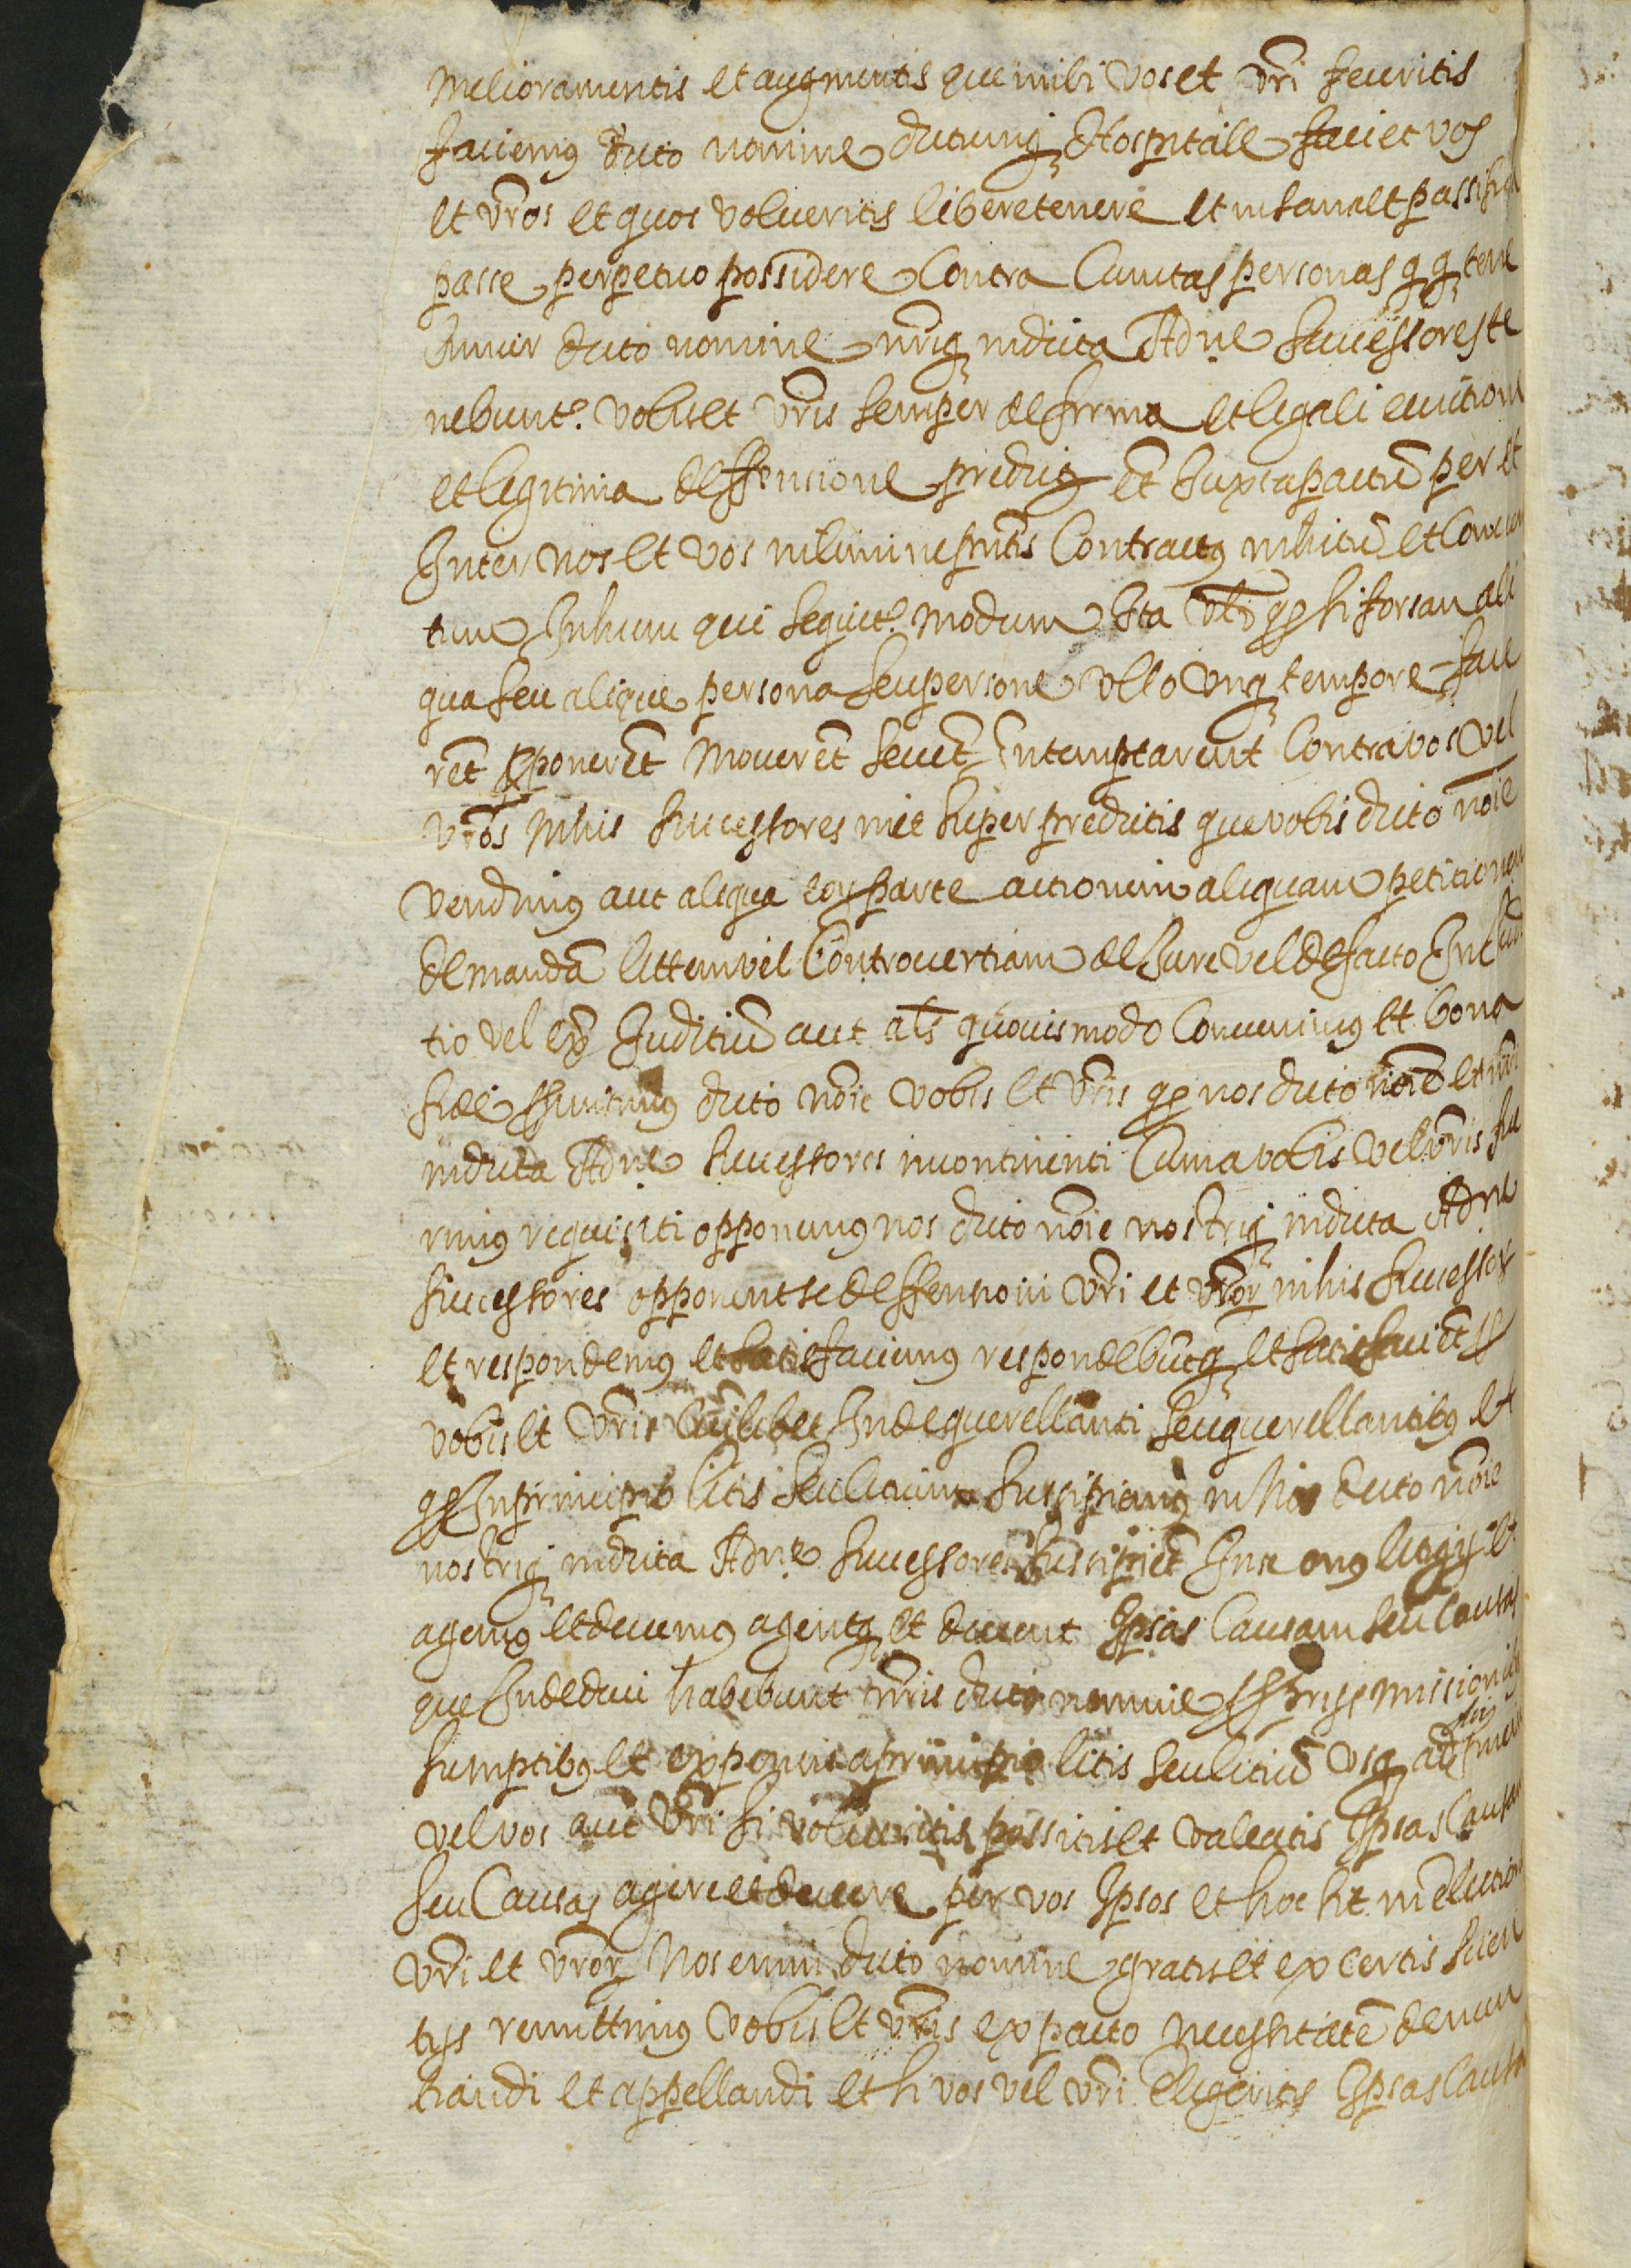 Melioramentis et augmentis que inibi vos et vr̃i feceritis
faciemꝰ dicto nomine dictumq3 Hospitale faciet vos
et vr̃os et quos volueritis libere tenere et in sana et passifica
passe perpetuo possidere Contra Cunctas personas qq3 tene
dicto nomine nr̃iq3 in dicta Adne Successores te
nebunt.ʳ vobis et vr̃is semper de firma et legali euictione
et legitima deffensione predictis et Juxta pactũ per et
Inter nos et vos in limine pr̃ntis Contractꝰ inhitũ et Conuen
tum In hunc qui sequit.ʳ modum Ita vlt̃ qꝫ si forsan ali
qua seu alique persona seu persone vllo vnq3 tempore face
rẽt pponerẽt Mouerẽt seu et Intemptarent Contra vos vel
vr̃os in his successores in et super predictis que vobis dicto nõie
vendimꝰ aut aliqua eoꝝ parte actionem aliquam petitionem
demandã littem vel Controuertiam de Jure vel de facto In Judi
tio vel ex̃ Juditiũ aut al̃s quouis modo Conuenimꝰ et bona
fide dicto nõie vobis et vr̃is qꝫ nos dicto nõie et nr̃i
in dicta Adne successores incontinenti Cum a vobis vel vr̃is fue
rimꝰ requisiti opponemꝰ nos dicto nõie nostriq3 in dicta Adne
successores opponent se deffensioni vr̃i et vr̃oꝝ in his successoꝝ
et respondemꝰ et satisfaciemꝰ respondebũtq3 et satisfaciẽt p
vobis et vr̃is Cuilibet Inde querellanti seu querellantibꝰ et
qꝫ In principio litis seu litium suscipiemꝰ in his dicto nõie
nostriq3 in dicta Adne successores suscipiẽt In se onꝰ litigij et
agemꝰ et ducemꝰ agentq3 et ducent Ipsas Causam seu Causas
que Inde duci habebunt nr̃is dicto nomine missionibꝰ
sumptibꝰ et expensis a principio litis seu litiũ vsq3 ad finem
vel vos aut vr̃i si volueritis possitis et valeatis Ipsas Causam
seu Causas agere et ducere per vos Ipsos et hoc sit in electione
vr̃i et vr̃oꝝ Nos enim dicto nomine gratis et ex certis scien
tiis remittimꝰ vobis et vr̃is ex pacto necessitatẽ denun
tiandi et appellandi et si vos vel vr̃i eligeritis Ipsas Causas